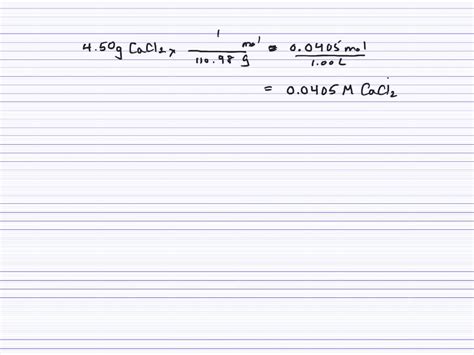 4.50g CaCl2 x 1 mol / 110.98 g = 0.0405 mol / 1.00 L
= 0.0405 M CaCl2